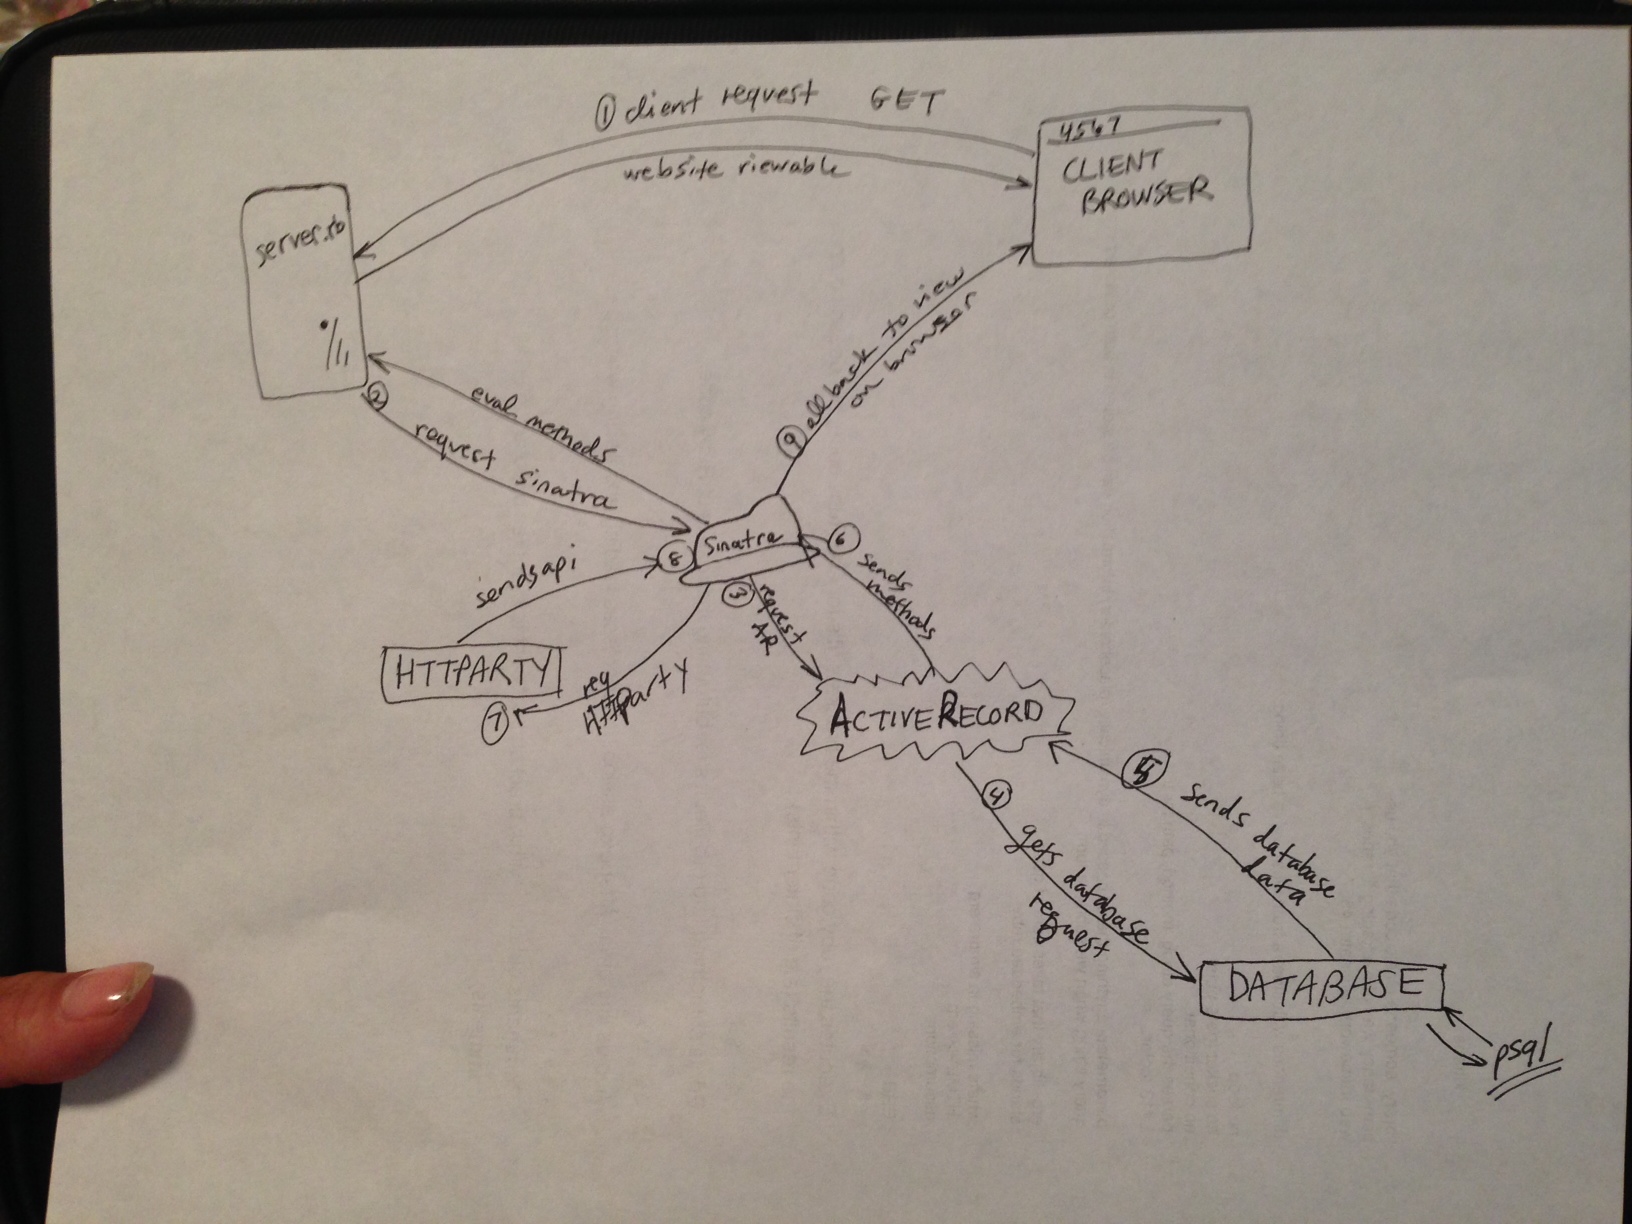 ① client request GET
website viewable
4567
CLIENT
BROWSER
server.rb
②
eval methods
request sinatra
⑨ all back to view
on browser
Sinatra
⑧
sends api
⑥
sends
methods
③
request
AR
HTTPARTY
⑦
req
HTTParty
ACTIVERECORD
⑤ sends database
data
④
gets database
request
DATABASE
psql